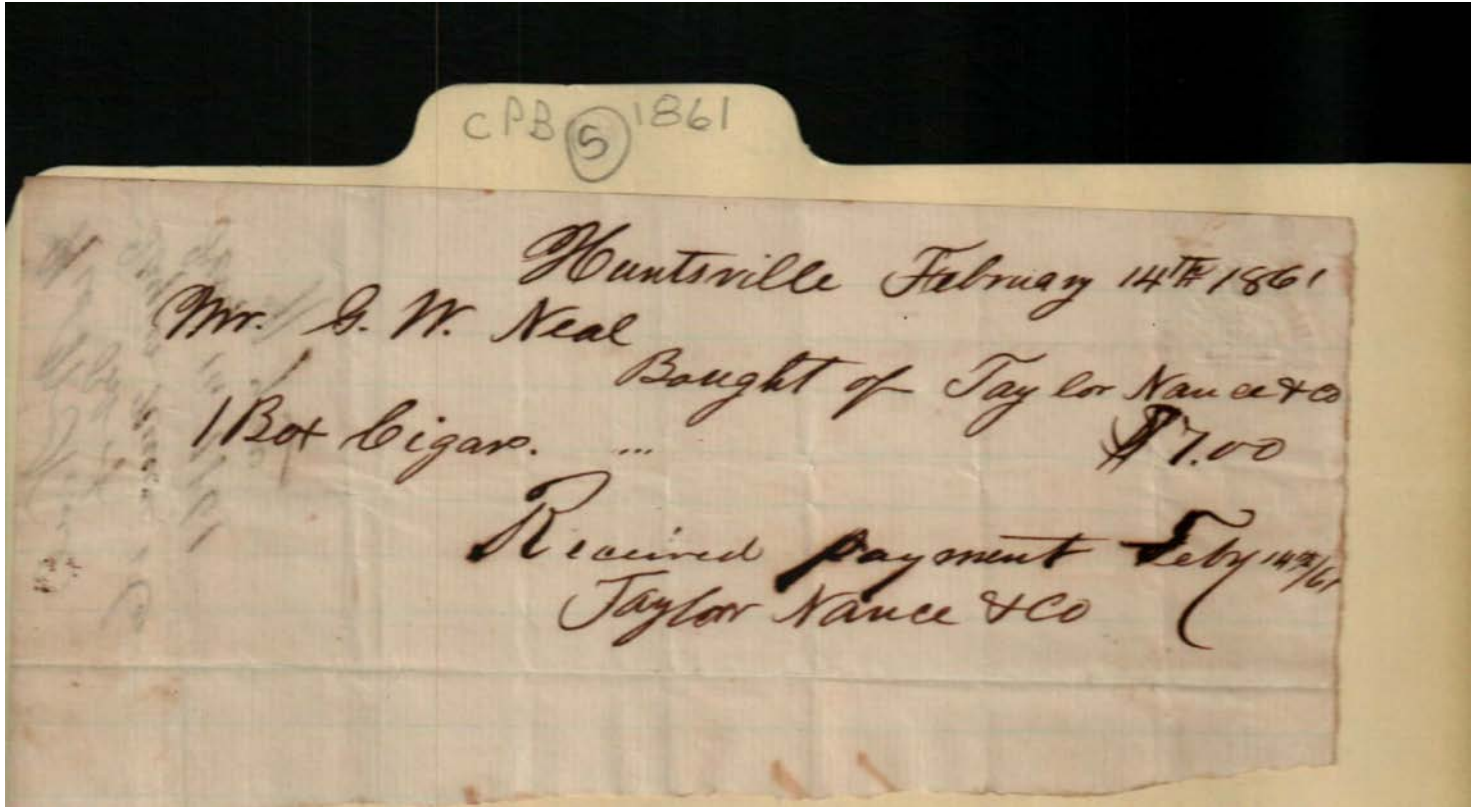 CPB 5 1861
Huntsville February 14TH 1861
Mr. G. W. Neal
Bought of Taylor Nance & Co
1 Box Cigars. ... $7.00
Received payment Feby 14th/61
Taylor Nance & Co